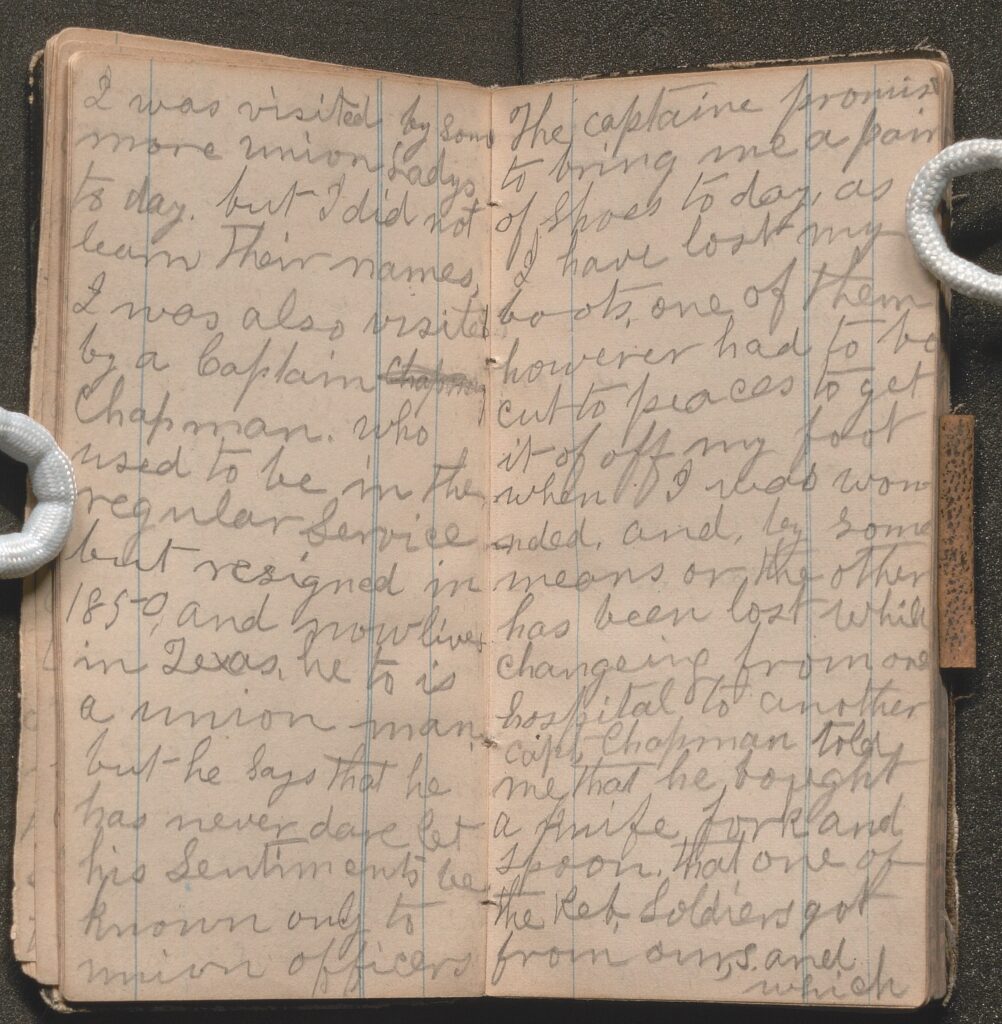 I was visited by some
more union Ladys
to day. but I did not
learn their names,
I was also visited
by a Captain Chapman
Chapman. who
used to be in the
regular Service
but resigned in
1850, and now lives
in Texas, he to is
a union man,
but he says that he
has never dare let
his Sentiments be
known only to
union officers
The captaine promis
to bring me a pair
of shoes to day, as
I have lost my
boots, one of them
however had to be
cut to peaces to get
it of off my foot
when I was wou
nded, and, by some
means or the other
has been lost while
changeing from one
hospital to another
capt, Chapman told
me that he bought
a knife, fork and
spoon, that one of
the Reb, Soldiers got
from ours, and
which